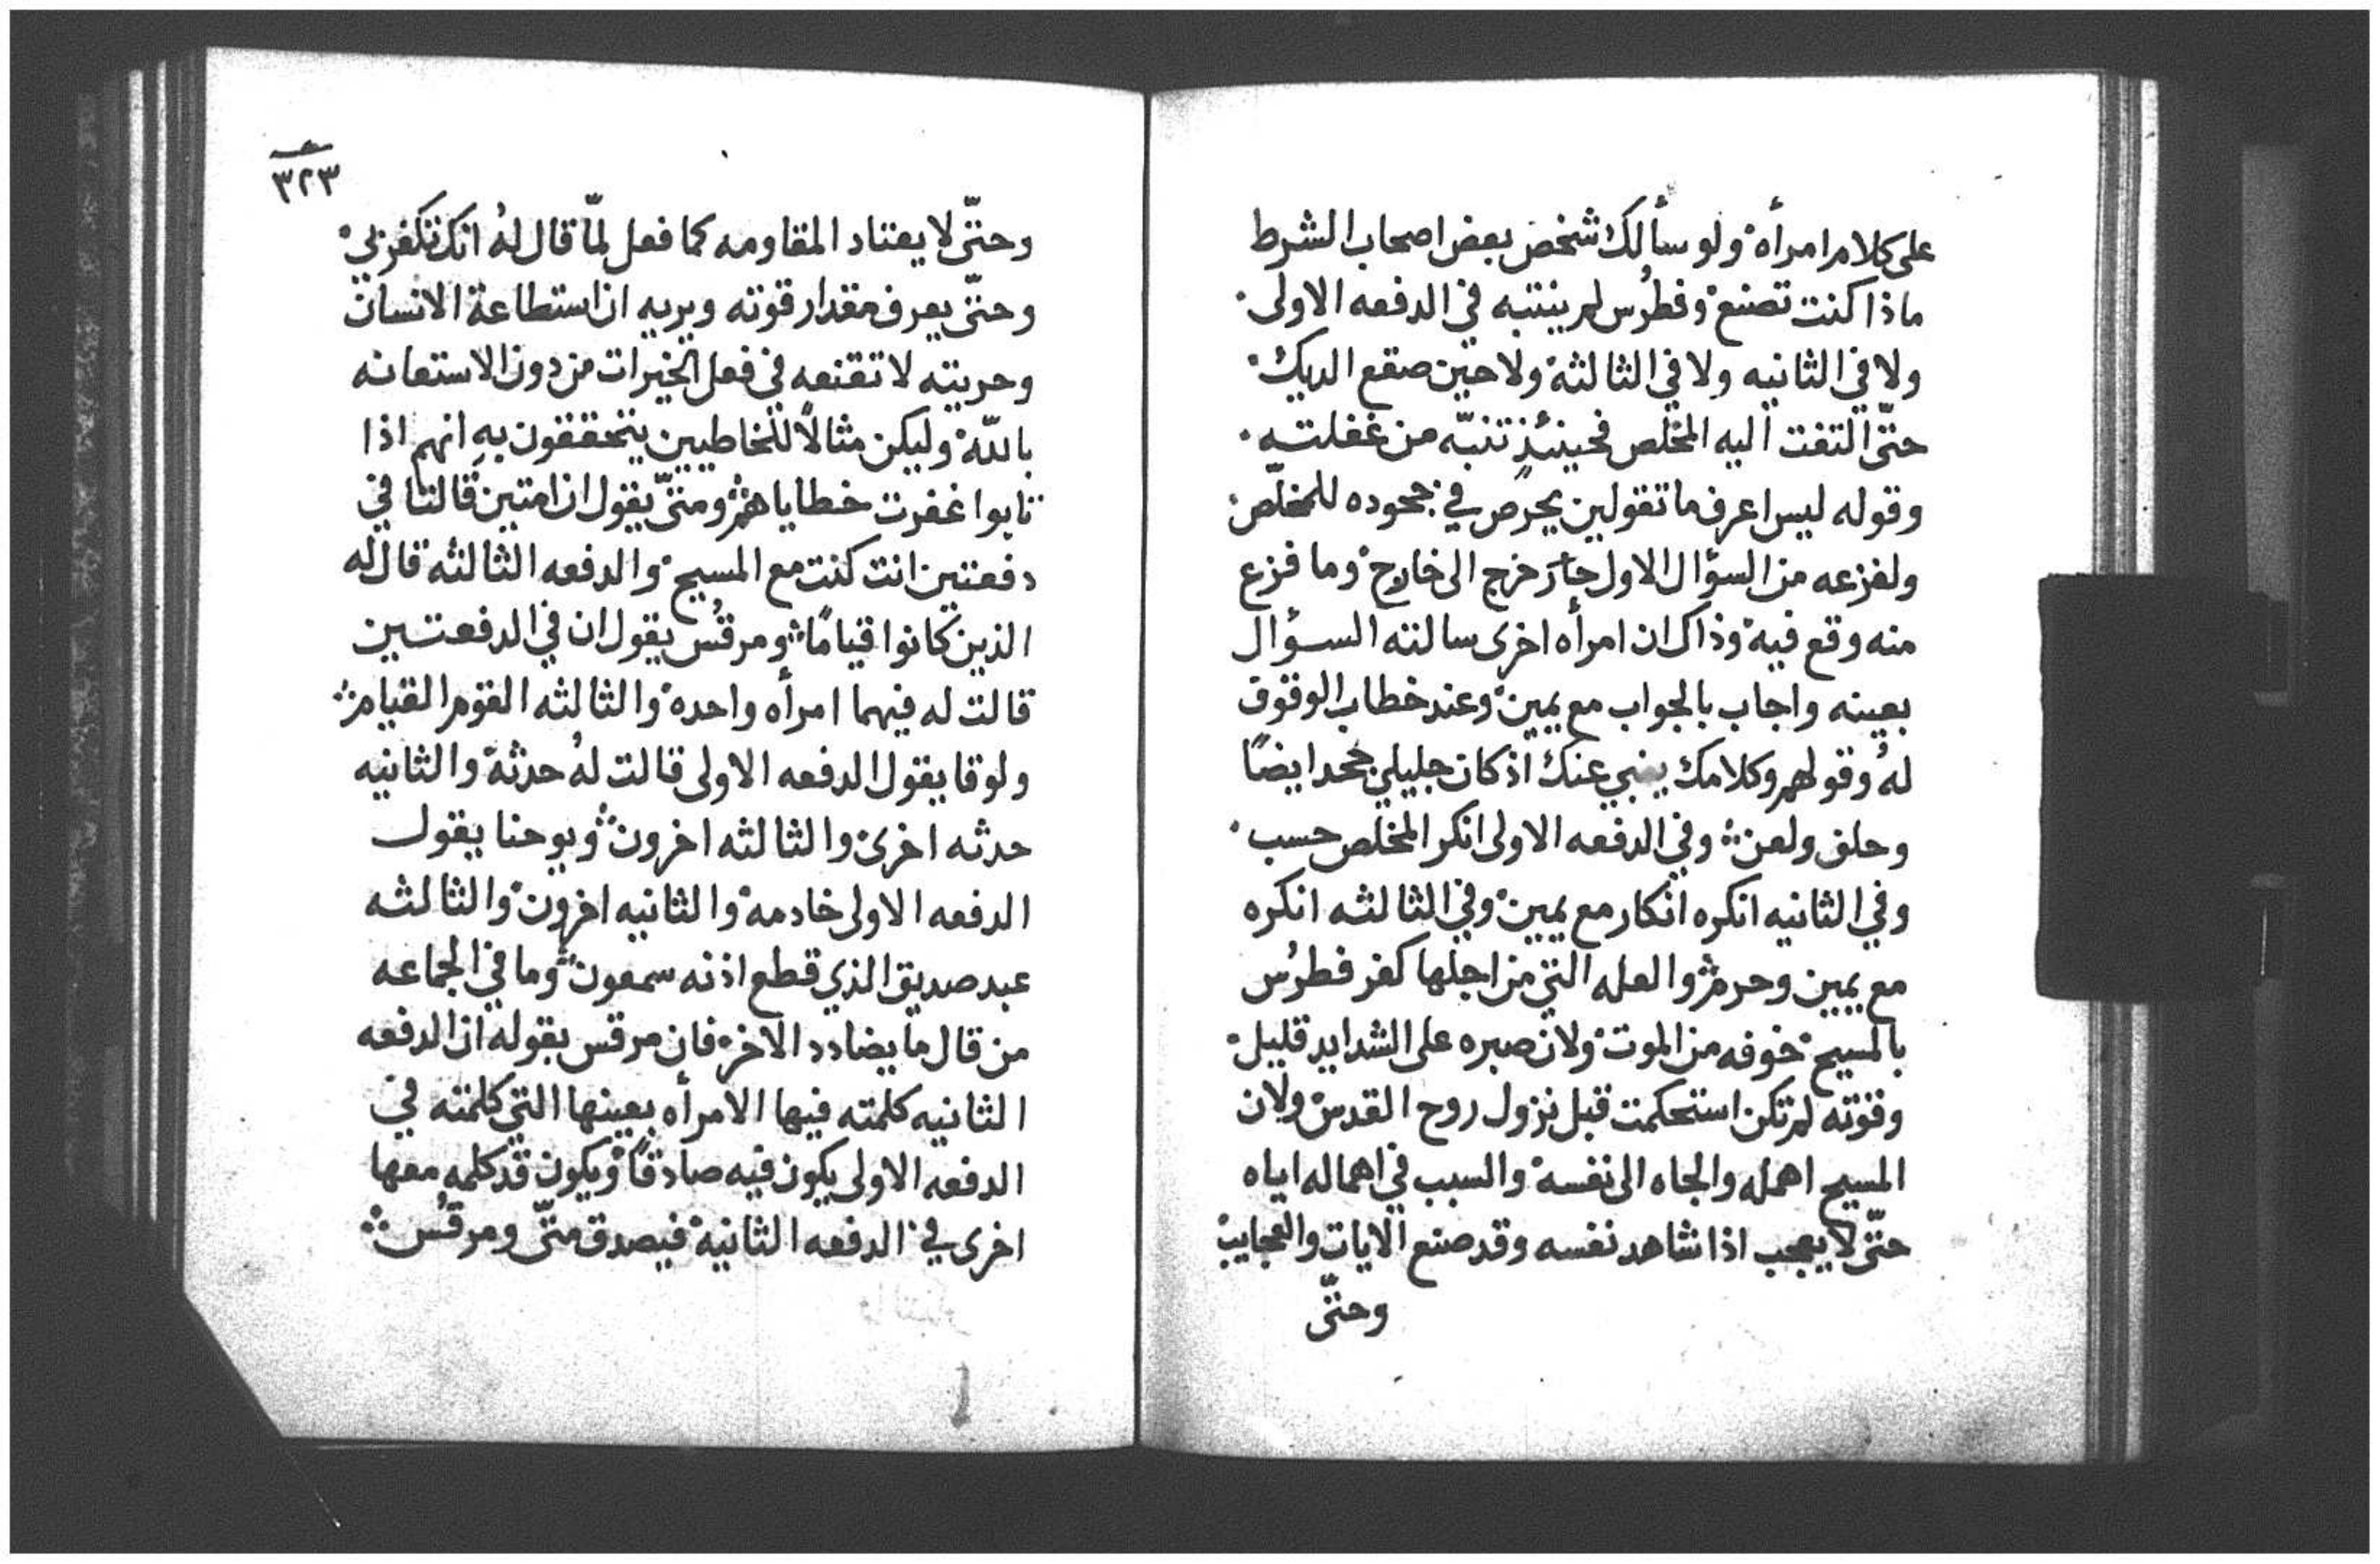 على كلام امرأه ولو سألك شخص بعض اصحاب الشرط
ماذا كنت تصنع وفطرس لم ينتبه في الدفعه الاولى
ولا في الثانيه ولا في الثالثة ولا حين صقع الديك
حتّى التفت اليه المخلص فحينئذٍ تنبّه من غفلته
وقوله ليس اعرف ما تقولين يحرص في جحوده للمخلّص
ولفزعه من السؤال الاول خرج الى خارج وما فزع
منه وقع فيه وذاك ان امرأه اخرى سالته السؤال
بعينه واجاب بالجواب مع يمين وعند خطاب الوقوف
لهُ وقولهم وكلامك ينبي عنك اذ كان جليلي جحد ايضًا
وحلف ولعن وفي الدفعه الاولى انكر المخلص حسب
وفي الثانيه انكره انكار مع يمين وفي الثالثه انكره
مع يمين وحرم والعله التي من اجلها كفر فطرُس
بالمسيح خوفه من الموت ولان صبره على الشدايد قليل
وقوته لم تكن استحكمت قبل نزول روح القدس ولان
المسيح اهمله والجاه الى نفسه والسبب في اهماله اياه
حتّى لا يعجب اذا شاهد نفسه وقد صنع الايات والعجايب
وحتّى
٣٢٣
وحتّى لا يعتاد المقاومه كما فعل لمّا قال لهُ انك تكفر بي
وحتّى يعرف مقدار قوته ويريه ان استطاعة الانسان
وحريته لا تقنعه في فعل الخيرات من دون الاستعانه
باللّه وليكن مثالاً للخاطيين يتحققون بهِ انهم اذا
تابوا غفرت خطاياهم ومتّى يقول ان امتين قالتا في
دفعتين انت كنت مع المسيح والدفعه الثالثه قال له
الذين كانوا قيامًا ومرقُس يقول ان في الدفعتين
قالت له فيهما امرأه واحده والثالثه القوم القيام
ولوقا يقول الدفعه الاولى قالت لهُ حدثة والثانيه
حدثه اخرى والثالثه اخرون ويوحنا يقول
الدفعه الاولى خادمه والثانيه اخرون والثالثه
عبد صديق الذي قطع اذنه سمعون وما في الجماعه
من قال ما يضادد الاخر فان مرقس بقوله ان الدفعه
الثانيه كلمته فيها الامرأه بعينها التي كلمته في
الدفعه الاولى يكون فيه صادقًا ويكون قد كلمه معها
اخرى في الدفعه الثانية فيصدق متّى ومرقُس